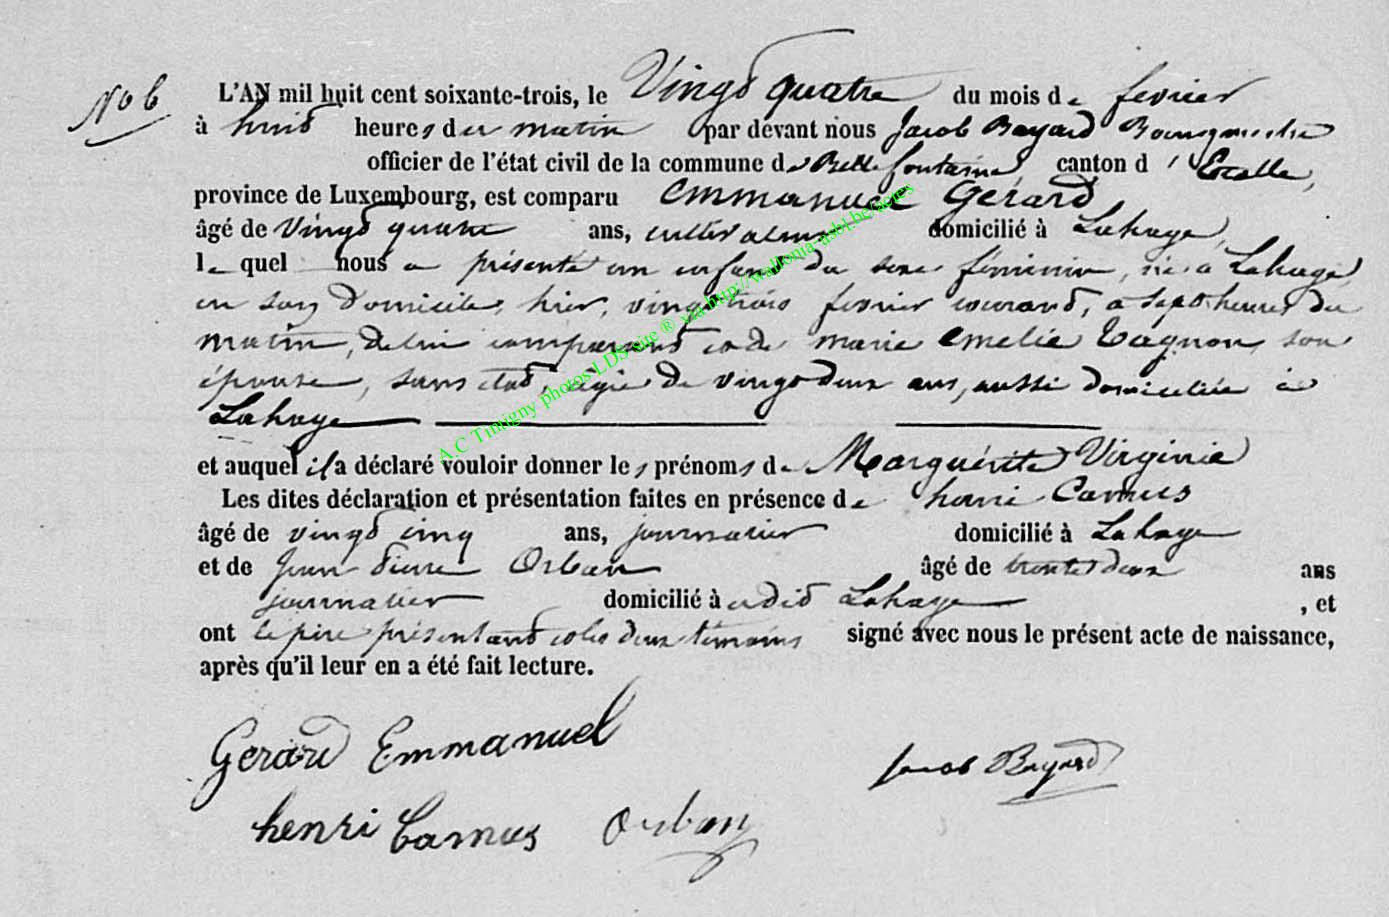 No 6
L'AN mil huit cent soixante-trois, le Vingt quatre du mois de fevrier
à huit heures du matin par devant nous Jacob Bayard Bourgmestre
officier de l'état civil de la commune de Bellefontaine, canton d'Etalle,
province de Luxembourg, est comparu Emmanuel Gérard,
âgé de Vingt quatre ans, cultivateur domicilié à Lahage,
le quel nous a présenté un enfant du sexe féminin, née à Lahage,
en son Domicile, hier, vingt trois fevrier courant, à sept heures du
matin, de lui comparant et de marie Emelie Tagnon, son
épouse, sans état, agée de vingt deux ans, aussi domiciliée à
Lahage
et auquel il a déclaré vouloir donner les prénoms de Marguérite Virginie
Les dites déclaration et présentation faites en présence de henri Camus
âgé de vingt cinq ans, journalier domicilié à Lahage
et de Jean Pierre Orban âgé de trente deux ans
journalier domicilié à udit Lahage , et
ont le père présentant et les deux témoins signé avec nous le présent acte de naissance,
après qu'il leur en a été fait lecture.
Gerard Emmanuel
Jacob Bayard
henri Camus Orban
A.C Tintigny photos LDS que ® via http://wallonia-asbl.be/actes